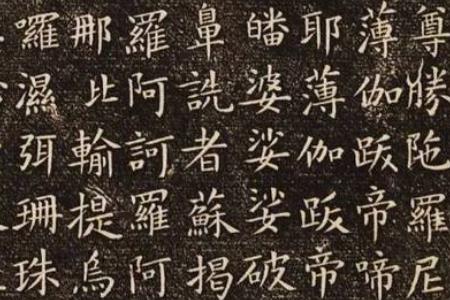 尊勝陁羅尼
薄伽跋帝啼
耶薄伽跋帝
皤婆娑娑破
鼻詵者蘇揭
羅阿訶羅阿
那比輸提烏
囉濕弭珊珠